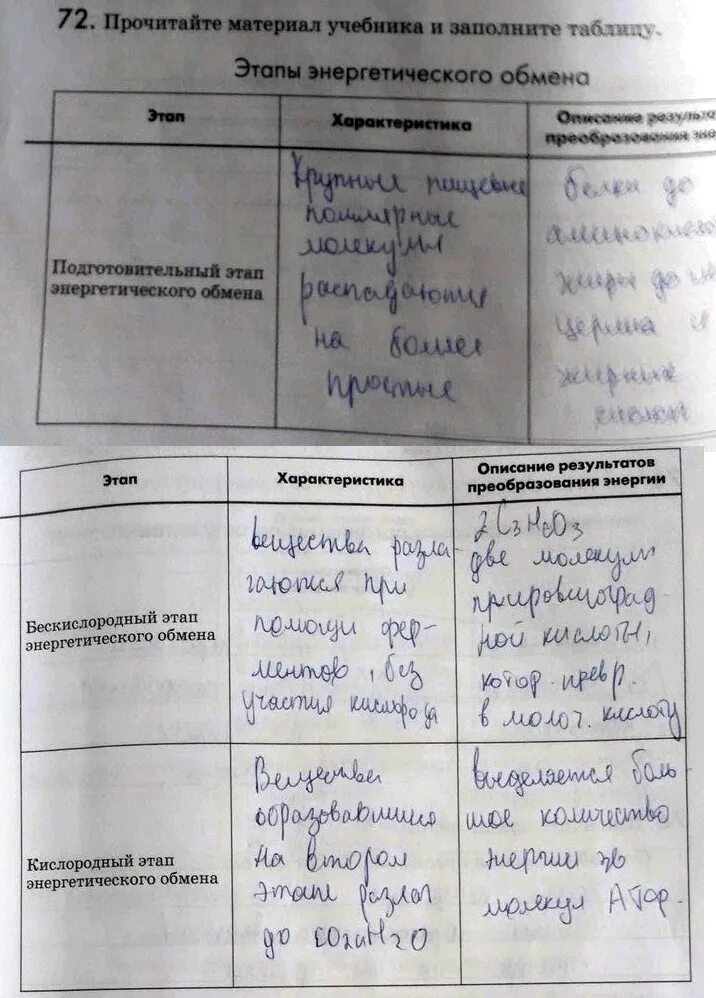 72. Прочитайте материал учебника и заполните таблицу.
Этапы энергетического обмена
Этап
Характеристика
Описание результа
преобразования эне
Подготовительный этап
энергетического обмена
Крупные пищевые
полимерные
молекулы
распадаются
на более
простые
белки до
аминокисло
жиры до
церина и
жирных
кислот
Этап
Характеристика
Описание результатов
преобразования энергии
Бескислородный этап
энергетического обмена
вещества разла-
гаются при
помощи фер-
ментов, без
участия кислорода
2C3H6O3
две молекулы
пировиноград-
ной кислоты,
котор. превр.
в молоч. кислоту
Кислородный этап
энергетического обмена
Вещества
образовавшиеся
на втором
этапе разлаг
до CO2 и H2O
выделяется боль-
шое количество
энергии
молекул АТФ